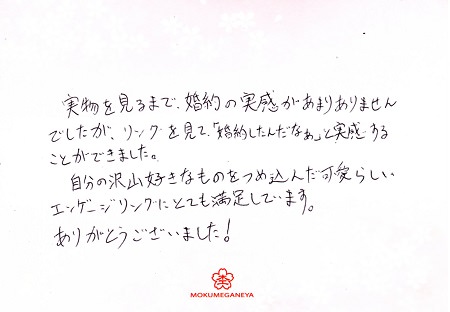 実物を見るまで、婚約の実感があまりありません
でしたが、リングを見て、「婚約したんだなぁ」と実感する
ことができました。
自分の沢山好きなものをつめ込んだ可愛らしい
エンゲージリングにとても満足しています。
ありがとうございました!
MOKUMEGANEYA